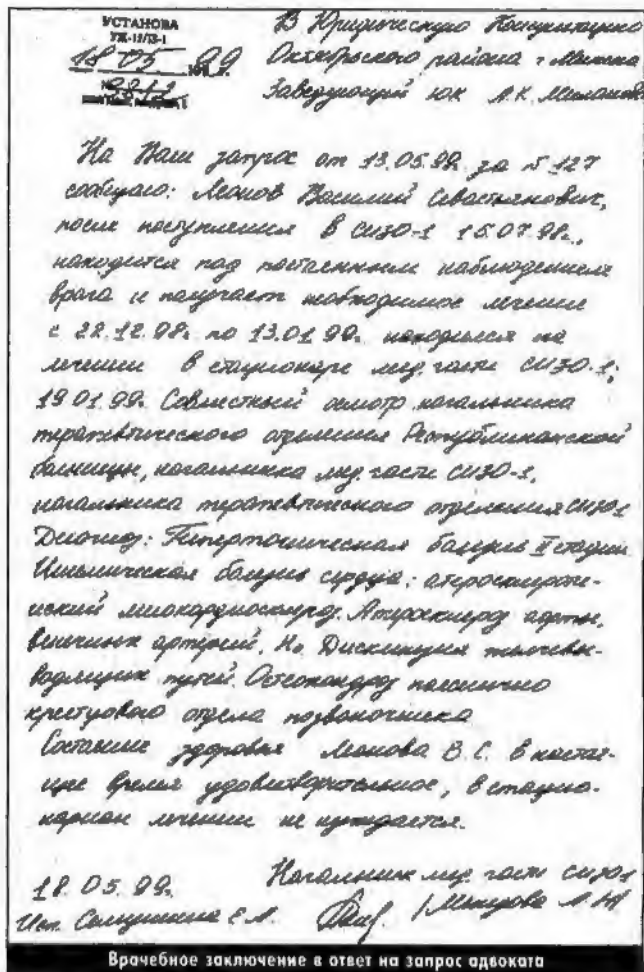 УСТАНОВА
УЖ-15/ІЗ-1
18 05 99
В Юридическую Консультацию
Октябрьского района г. Минска
Заведующий юк А.К.
На Ваш запрос от 13.05.99. за № 127
сообщаю: Леонов Василий Севастьянович,
после поступления в СИЗО-1 15.07.98г.,
находится под постоянным наблюдением
врача и получает необходимое лечение
с 22.12.98г. по 13.01.99. находился на
лечении в стационаре мед. части СИЗО-1;
19.01.99. Совместный осмотр начальника
терапевтического отделения Республиканской
больницы, начальника мед. части СИЗО-1,
начальника терапевтического отделения СИЗО1
Диагноз: Гипертоническая болезнь II стадии
Ишемическая болезнь сердца: атеросклероти-
ческий миокардиосклероз. Атеросклероз аорты,
венечных артерий. Н₀. Дискинезия желчевы-
водящих путей. Остеохондроз пояснично
крестцового отдела позвоночника
Состояние здоровья Леонова В.С. в настоя-
щее время удовлетворительное, в стацио-
нарном лечении не нуждается.
18.05.99.
Начальник мед. части СИЗО1
Исп. Е.А.
Врачебное заключение в ответ на запрос адвоката